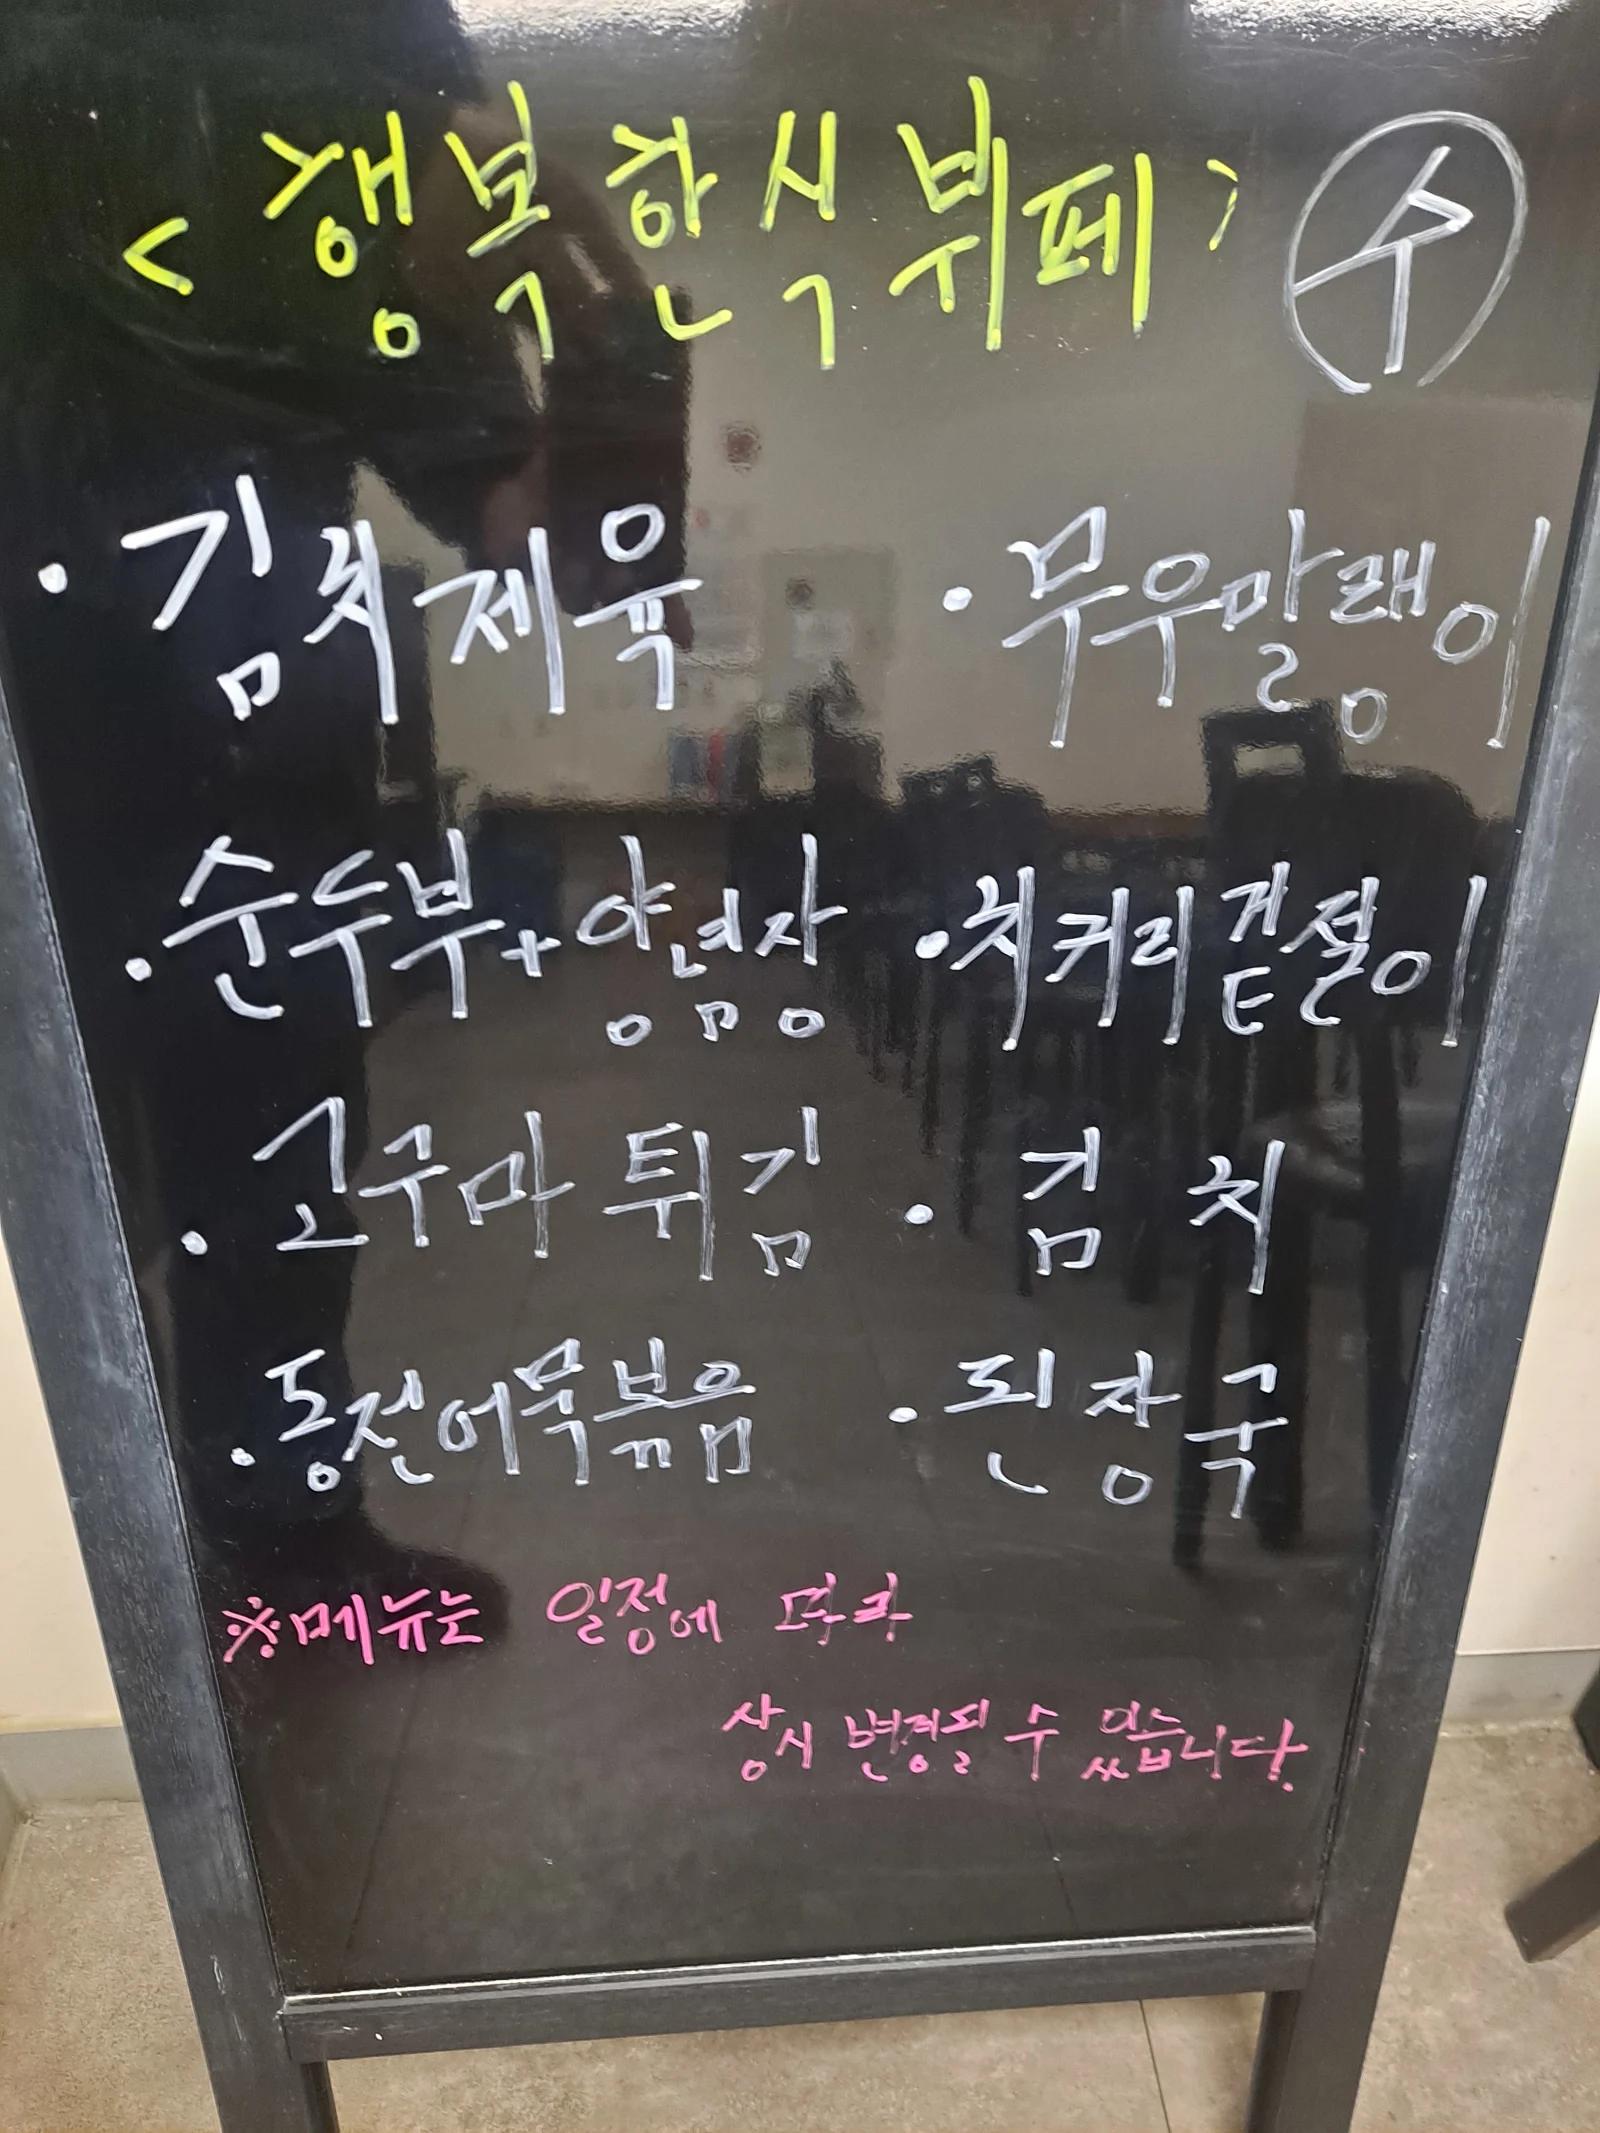 <행복한식뷔페> 수
·김치제육 ·무우말랭이
·순두부+양념장 ·치커리겉절이
·고구마튀김 ·김치
·동전어묵볶음 ·된장국
※메뉴는 일정에 따라
상시 변경될 수 있습니다.